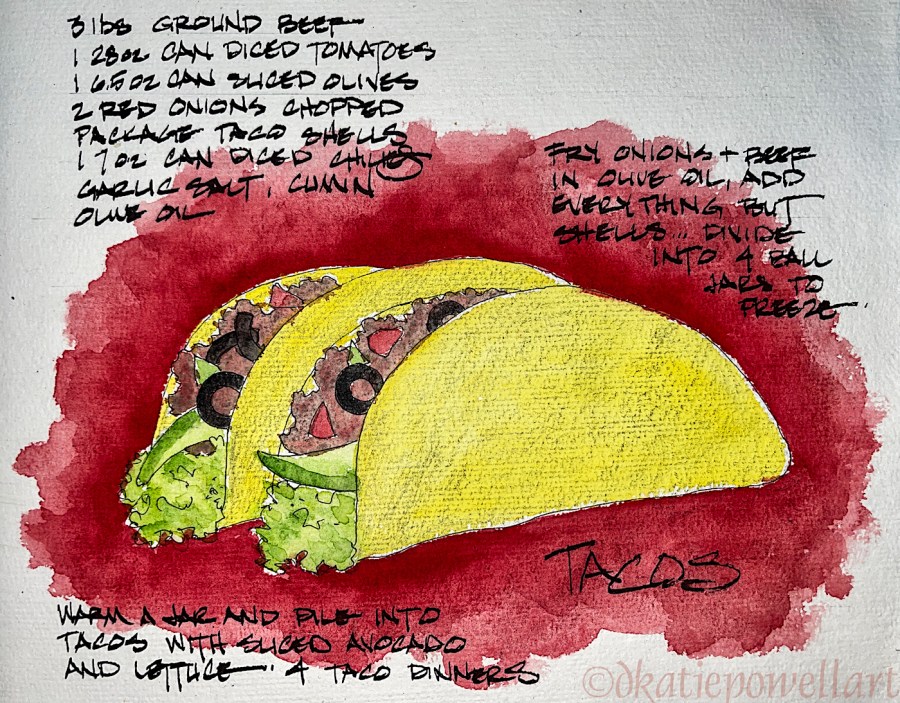 3 lbs GROUND BEEF
1 28oz CAN DICED TOMATOES
1 6.5 oz CAN SLICED OLIVES
2 RED ONIONS CHOPPED
PACKAGE TACO SHELLS
1 7oz CAN DICED CHILIES
GARLIC SALT, CUMIN
OLIVE OIL
FRY ONIONS + BEEF
IN OLIVE OIL, ADD
EVERYTHING BUT
SHELLS... DIVIDE
INTO 4 BALL
JARS TO
FREEZE.
TACOS
WARM A JAR AND PILE INTO
TACOS WITH SLICED AVOCADO
AND LETTUCE. 4 TACO DINNERS
©dkatiepowellart